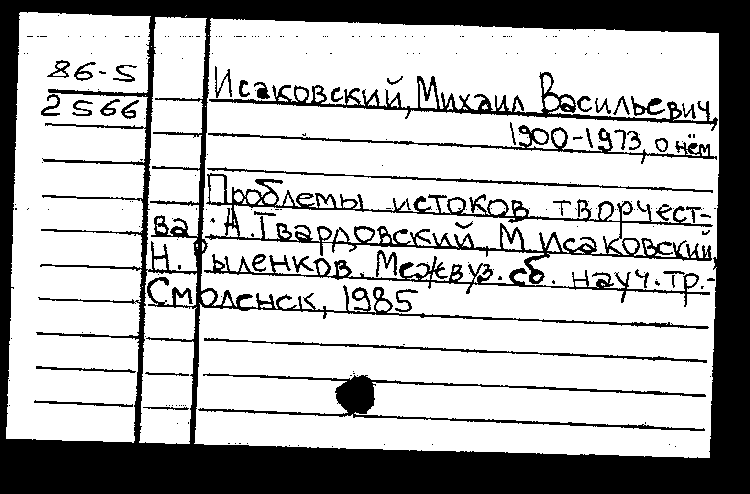 86-5
2566
Исаковский, Михаил Васильевич,
1900-1973, о нём
Проблемы истоков творчест-
ва: А. Твардовский, М. Исаковский,
Н. Рыленков. Межвуз. сб. науч. тр.-
Смоленск, 1985.